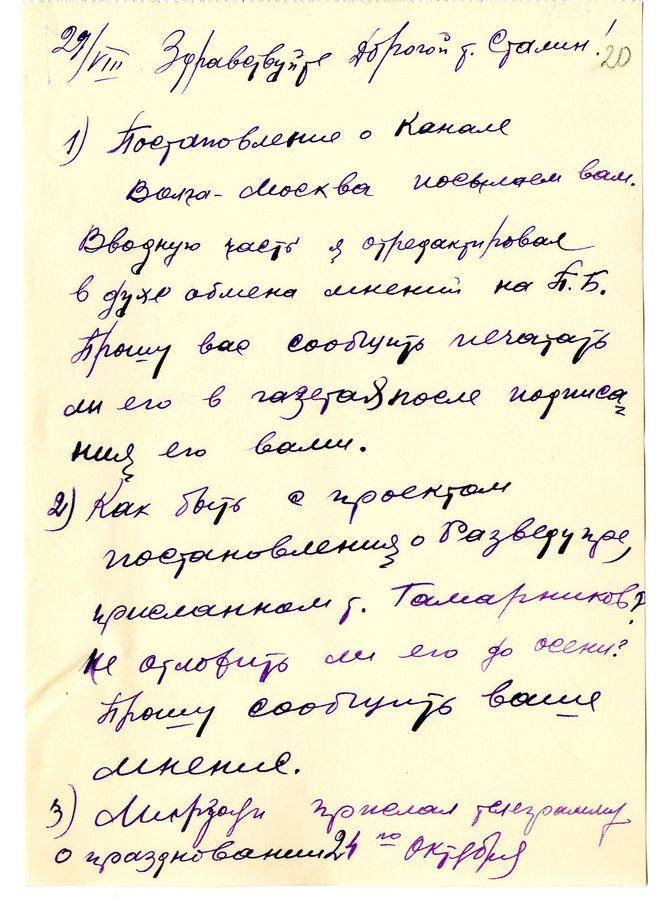 29/VIII Здравствуйте Дорогой т. Сталин!
20
1) Постановление о Канале
Волга-Москва посылаем вам.
Вводную часть я отредактировал
в духе обмена мнений на П.Б.
Прошу вас сообщить печатать
ли его в газетах после подписа
ния его вами.
2) Как быть с проектом
постановления о Разведупре,
присланном т. Гамарником?
не отложить ли его до осени?
Прошу сообщить ваше
мнение.
3) прислал телеграмму
о праздновании 24го Октября